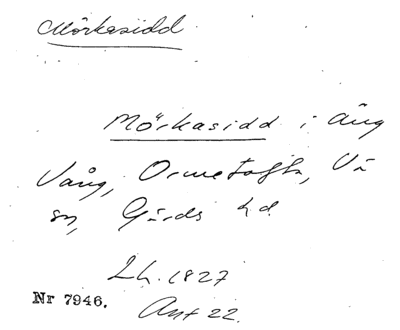 Mörkasidd
Mörkasidd i äng
Vång, Ormetofta, Vä
sn, Gärds hd.
Lh. 1827
Nr 7946. Akt 22.